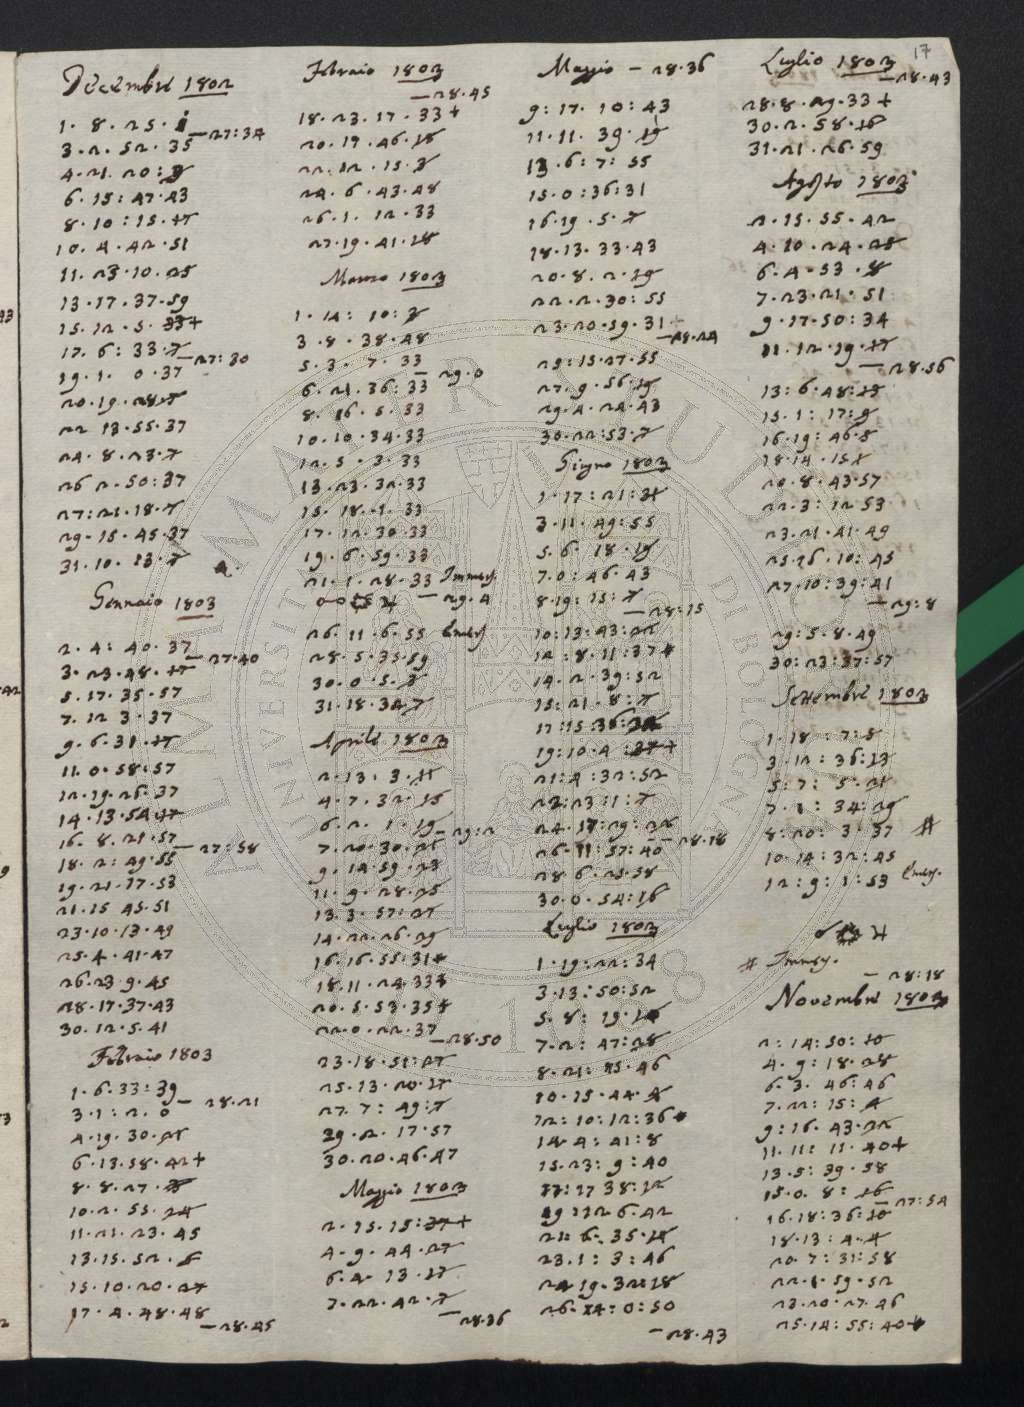 17
Decembre 1802
1. 8. 25. 1
— 27:34
3. 2. 52. 35
4. 21. 20:
6. 15: 47. 43
8. 10: 15. 17
10. 4. 42. 51
11. 23. 10. 25
13. 17. 37. 59
15. 12. 5. 33+
17. 6: 33. 7
— 27:30
19. 1. 0. 37
20. 19. 28. 7
22 13. 55. 37
24. 8. 23. 7
26 2. 50: 37
27: 21. 18. 7
29. 15. 45. 37
31. 10. 13. 7
Gennaio 1803
2. 4: 40. 37
— 27.40
3. 23. 48. 17
5. 17. 35. 57
7. 12 3. 37
9. 6. 31. 17
11. 0. 58. 57
12. 19. 26. 37
14. 13. 54. 17
16. 8. 21. 57
— 27:58
18. 2: 49. 55
19. 21. 17. 53
21. 15 45. 51
23. 10. 13. 49
25. 4. 41. 47
26. 23. 9. 45
28. 17. 37. 43
30. 12. 5. 41
Febraio 1803
1. 6. 33: 39
— 28.21
3. 1: 2. 0
4. 19. 30. 21
6. 13. 58. 42+
8. 8. 27.
10. 2. 55. 24
11. 21. 23. 45
13. 15. 52. 6
15. 10. 20. 27
17. 4. 48. 48
— 28.45
Febraio 1803
— 28.45
18. 23. 17. 33+
20. 17. 46. 18
22. 12. 15. 3
24. 6. 43. 48
26. 1. 12. 33
27. 19. 41. 18
Marzo 1803
1. 14: 10: 3
3. 8. 38. 48
5. 3. 7. 33
— 29.0
6. 21. 36: 33
8. 16. 5. 33
10. 10. 34. 33
12. 5. 3. 33
13. 23. 32. 33
15. 18. 1. 33
17. 12. 30. 33
19. 6. 59. 33
21. 1. 28. 33 Immers.
☍ ☼ ♃ — 29.4
26. 11. 6. 55 Emers.
28. 5. 35. 59
30. 0. 5. 3
31. 18. 34. 7
Aprile 1803
2. 13. 3. 11
4. 7. 32. 15
6. 2. 1. 19
— 29:2
7. 20. 30. 21
9. 14. 59. 23
11. 9. 28. 25
13. 3. 57: 27
14. 22. 26. 29
16. 16. 55: 31+
18. 11. 24. 33+
20. 5. 53. 35+
22. 0. 22. 37
— 28.50
23. 18. 51: 27
25. 13. 20. 17
27. 7: 49: 7
29. 2. 17. 57
30. 20. 46. 47
Maggio 1803
2. 15. 15: 37+
4. 9. 44. 27
6. 4. 13. 17
7. 22. 42. 7
— 28.36
Maggio — 28.36
9: 17. 10: 43
11. 11. 39. 19
13. 6: 7: 55
15. 0: 36: 31
16. 19. 5. 7
18. 13. 33. 43
20. 8. 2. 19
22. 2. 30: 55
23. 20. 59. 31+
— 28.24
25: 15. 27. 55
27. 9. 56. 19
29. 4. 24. 43
30. 22: 53. 7
Giugno 1803
1. 17: 21: 31
3. 11. 49: 55
5. 6. 18. 19
7. 0: 46. 43
8. 19: 15: 7
— 28:15
10: 13: 43: 22
12: 8. 11: 37+
14. 2. 39: 52
15: 21. 8: 7
17: 15: 36:
19: 10. 4: 37+
21: 4: 32: 52
22: 23: 1: 7
24. 17: 29: 22
— 28.18
26. 11: 57: 40
28 6. 25. 58
30. 0. 54: 16
Luglio 1803
1. 19: 22: 34
3. 13: 50: 52
5. 8: 19. 10
7. 2: 47: 28
8. 21: 15. 46
10. 15. 44. 4
12: 10: 12: 36+
14. 4: 41: 8
15. 23: 9: 40
17: 17 38: 12
19: 12. 6. 42
21: 6. 35. 14
23. 1: 3: 46
24. 19. 32: 18
26. 14: 0: 50
— 28.43
Luglio 1803
— 28.43
28. 8. 29. 33+
30. 2. 58. 16
31. 21. 26. 59
Agosto 1803
2. 15. 55. 42
4. 10. 24. 25
6. 4. 53. 8
7. 23. 21. 51
9. 17. 50: 34
11. 12. 19. 17
— 28.56
13: 6. 48: 13
15. 1: 17: 9
16. 19: 46. 5
18. 14. 15. 1
20. 8. 43. 57
22. 3: 12. 53
23. 21. 41. 49
25. 16. 10: 45
27. 10: 39: 41
— 29: 8
29: 5. 8. 49
30: 23: 37: 57
Settembre 1803
1. 18: 7: 5
3. 12: 36: 13
5: 7: 5: 21
7. 1: 34: 29
8: 20: 3. 37 #
10. 14: 32: 45
12: 9: 1: 53 Emers.
☌ ☼ ♃
# Immers.
— 28:18
Novembre 1803
2: 14: 50: 10
4. 9: 18. 28
6. 3. 46: 46
7. 22: 15: 4
9: 16. 43. 22
11. 11: 11. 40+
13. 5: 39. 58
15. 0. 8: 16
— 27:54
16. 18: 36: 10
18. 13: 4. 4
20. 7: 31: 58
22. 1. 59. 52
23. 20. 27. 46
25. 14: 55: 40+
ALMA MATER STUDIORUM
UNIVERSITÀ DI BOLOGNA
1088